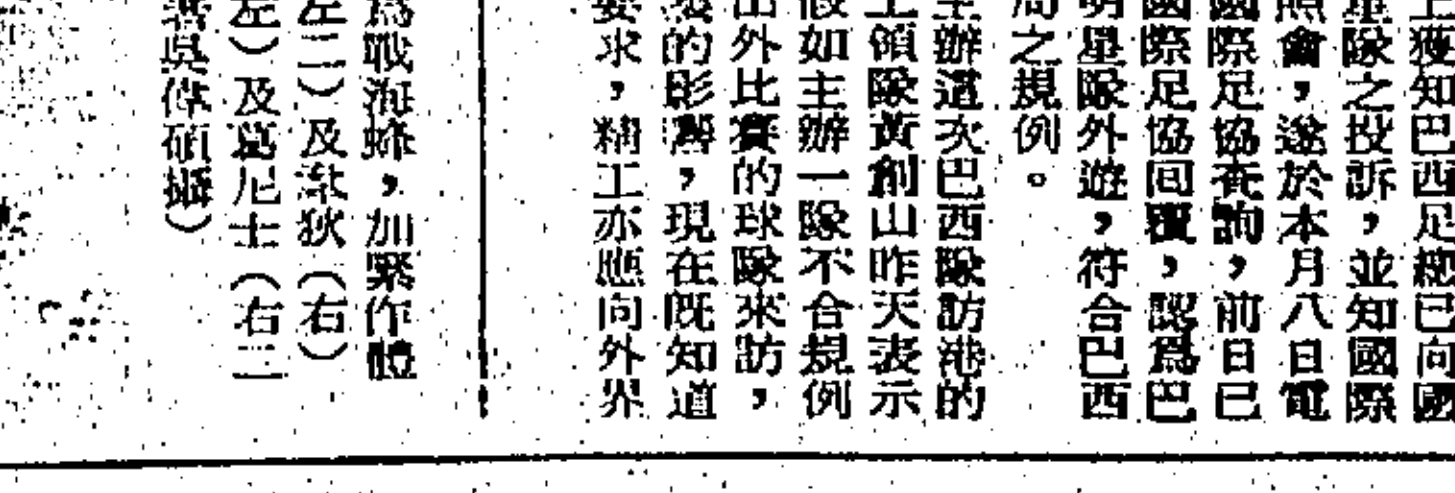 上獲知巴西足總已向國
隊之投訴，並知國際
照會，遂於本月八日電
國際足協查詢，前日已
國際足協回覆，認爲巴
明星隊外遊，符合巴西
之規例。
主辦這次巴西隊訪港的
領隊黃創山昨天表示
假如主辦一隊不合規例
出外比賽的球隊來訪，
的影響，現在既知道
要求，精工亦應向外界
爲戰海蜂，加緊作體
左二）及狄（右）
左）及葛尼士（右二
吳偉碩攝）